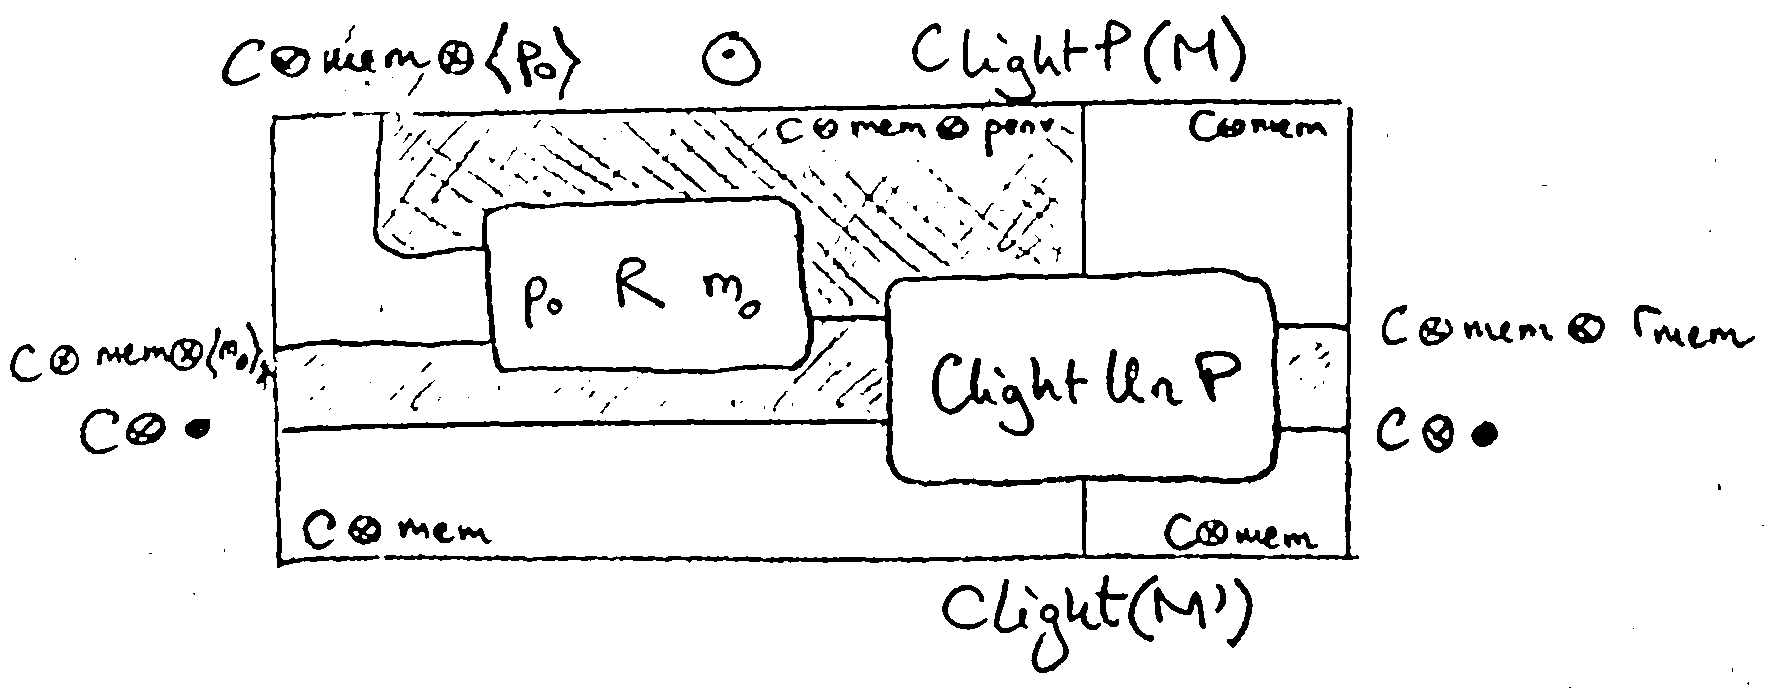 C⊗mem⊗⟨p₀⟩ ⊙ ClightP(M)
C⊗mem⊗penv C⊗mem
p₀ R m₀
C⊗mem⊗⟨m₀⟩ C⊗mem⊗rmem
Clight Un P
C⊗• C⊗•
C⊗mem C⊗mem
Clight(M')